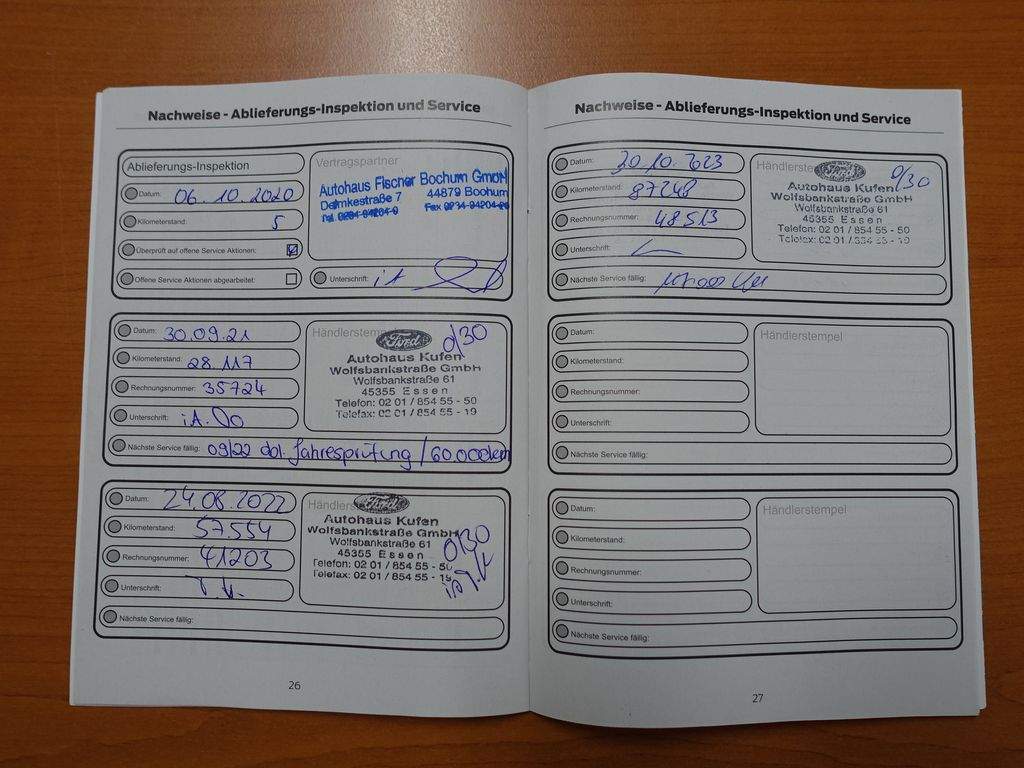 Nachweise - Ablieferungs-Inspektion und Service
Ablieferungs-Inspektion
Datum: 06.10.2020
Kilometerstand: 5
Überprüft auf offene Service Aktionen:
Offene Service Aktionen abgearbeitet:
Vertragspartner
Autohaus Fischer Bochum GmbH
Dalmkestraße 7
44879 Bochum
Tel. 0234-94204-0
Fax 0234-94204-20
Unterschrift: i.A.
Datum: 30.09.21
Kilometerstand: 28.117
Rechnungsnummer: 35724
Unterschrift: i.A. Do
Nächste Service fällig: 09/22 od. Jahresprüfung / 60.000km
Händlerstempel
Ford
0/30
Autohaus Kufen
Wolfsbankstraße GmbH
Wolfsbankstraße 61
45355 Essen
Telefon: 02 01 / 854 55 - 50
Telefax: 02 01 / 854 55 - 19
Datum: 24.08.2022
Kilometerstand: 57.554
Rechnungsnummer: 41203
Unterschrift:
Nächste Service fällig:
Händlerstempel
Ford
Autohaus Kufen
Wolfsbankstraße GmbH
Wolfsbankstraße 61
45355 Essen
Telefon: 02 01 / 854 55 - 50
Telefax: 02 01 / 854 55 - 19
0/30
26
Nachweise - Ablieferungs-Inspektion und Service
Datum: 30.10.2023
Kilometerstand: 87248
Rechnungsnummer: 48513
Unterschrift:
Nächste Service fällig:
Händlerstempel
Ford
0/30
Autohaus Kufen
Wolfsbankstraße GmbH
Wolfsbankstraße 61
45355 Essen
Telefon: 02 01 / 854 55 - 50
Telefax: 02 01 / 854 55 - 19
Datum:
Kilometerstand:
Rechnungsnummer:
Unterschrift:
Nächste Service fällig:
Händlerstempel
Datum:
Kilometerstand:
Rechnungsnummer:
Unterschrift:
Nächste Service fällig:
Händlerstempel
27